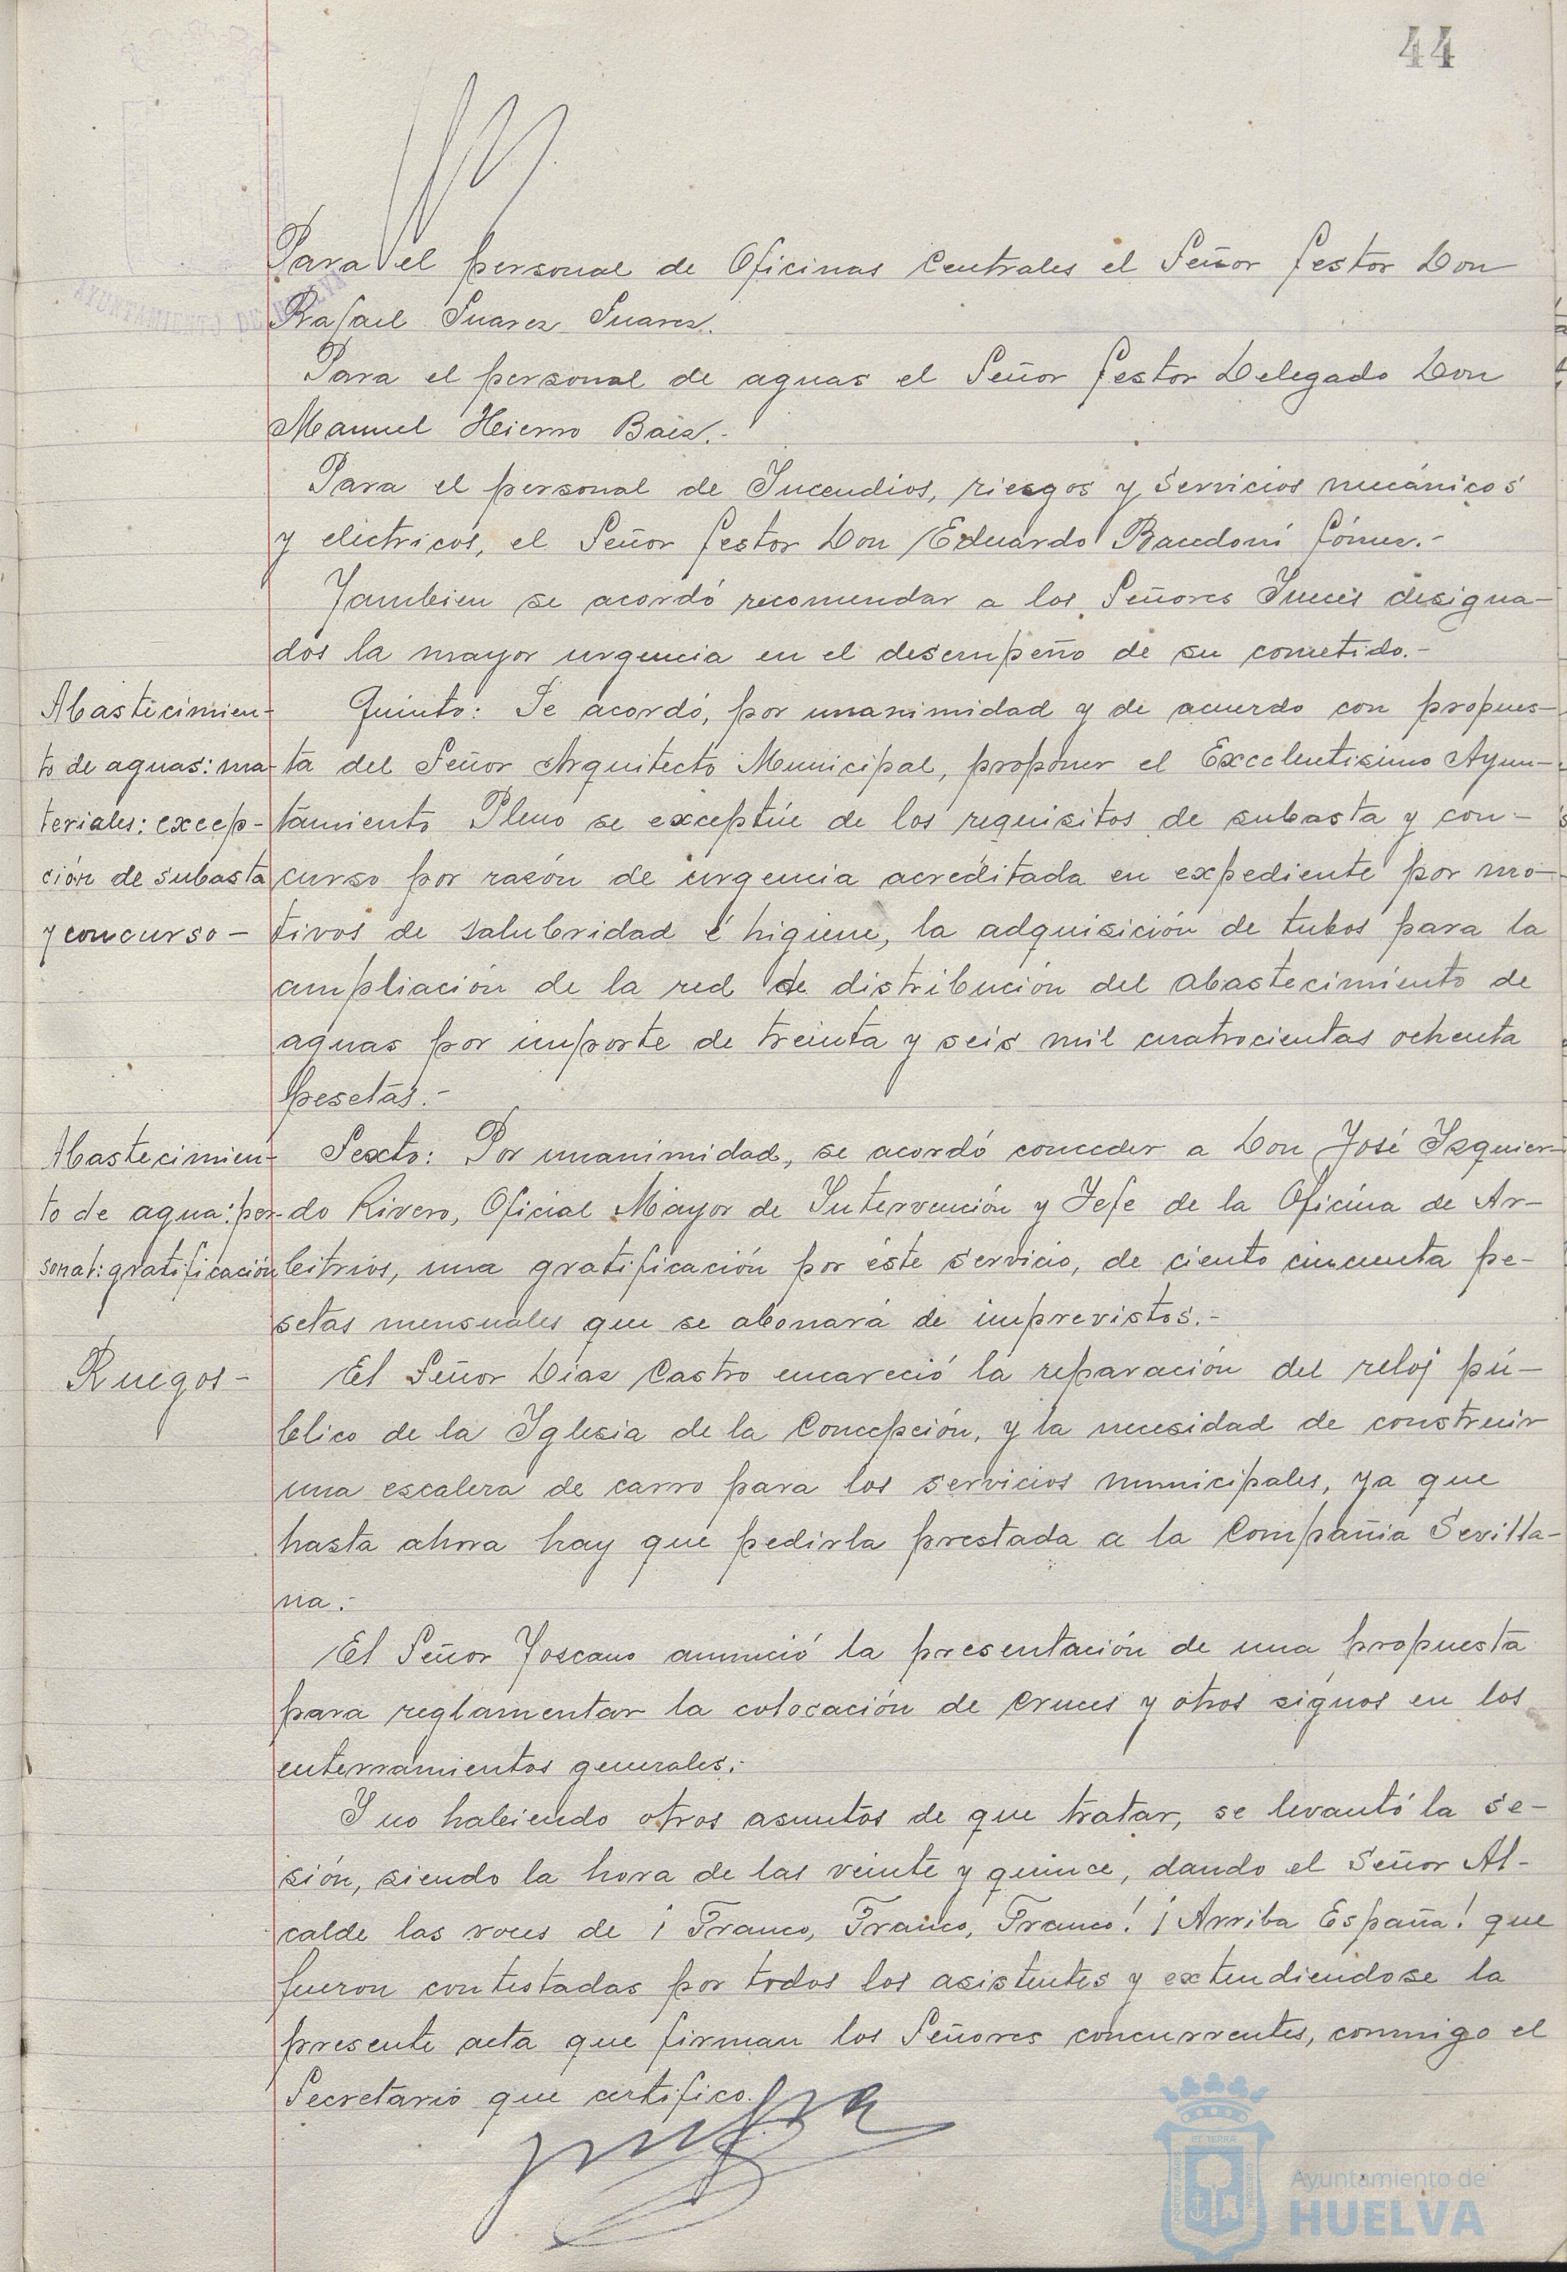 44
Para el personal de Oficinas Centrales el Señor Gestor Don
Rafael Suarez Suarez.
Para el personal de aguas el Señor Gestor Delegado Don
Manuel Hierro Baez.-
Para el personal de Incendios, riesgos y servicios mecánicos
y electricos, el Señor Gestor Don Eduardo Gómez.-
Tambien se acordó recomendar a los Señores Jueces designa-
dos la mayor urgencia en el desempeño de su cometido.-
Abastecimien-
to de aguas: ma-
teriales: excep-
ción de subasta
y concurso-
Quinto: Se acordó, por unanimidad y de acuerdo con propues-
ta del Señor Arquitecto Municipal, proponer el Excelentisimo Ayun-
tamiento Pleno se exceptúe de los requisitos de subasta y con-
curso por razón de urgencia acreditada en expediente por mo-
tivos de salubridad é higiene, la adquisición de tubos para la
ampliación de la red de distribución del abastecimiento de
aguas por importe de treinta y seis mil cuatrocientas ochenta
pesetas.-
Abastecimien-
to de agua: per-
sonal: gratificación
Sexto: Por unanimidad, se acordó conceder a Don José Izquier-
do Rivero, Oficial Mayor de Intervención y Jefe de la Oficina de Ar-
bitrios, una gratificación por éste servicio, de ciento cincuenta pe-
setas mensuales que se abonará de imprevistos.-
Ruegos-
El Señor Díaz Castro encareció la reparación del reloj pú-
blico de la Iglesia de la Concepción, y la necesidad de construir
una escalera de carro para los servicios municipales, ya que
hasta ahora hay que pedirla prestada a la Compañia Sevilla-
na.-
El Señor Toscano anunció la presentación de una propuesta
para reglamentar la colocación de cruces y otros signos en los
enterramientos generales.-
Y no habiendo otros asuntos de que tratar, se levantó la se-
sión, siendo la hora de las veinte y quince, dando el Señor Al-
calde las voces de ¡Franco, Franco, Franco! ¡Arriba España! que
fueron contestadas por todos los asistentes y extendiendose la
presente acta que firman los Señores concurrentes, conmigo el
Secretario que certifico.
Ayuntamiento de
HUELVA